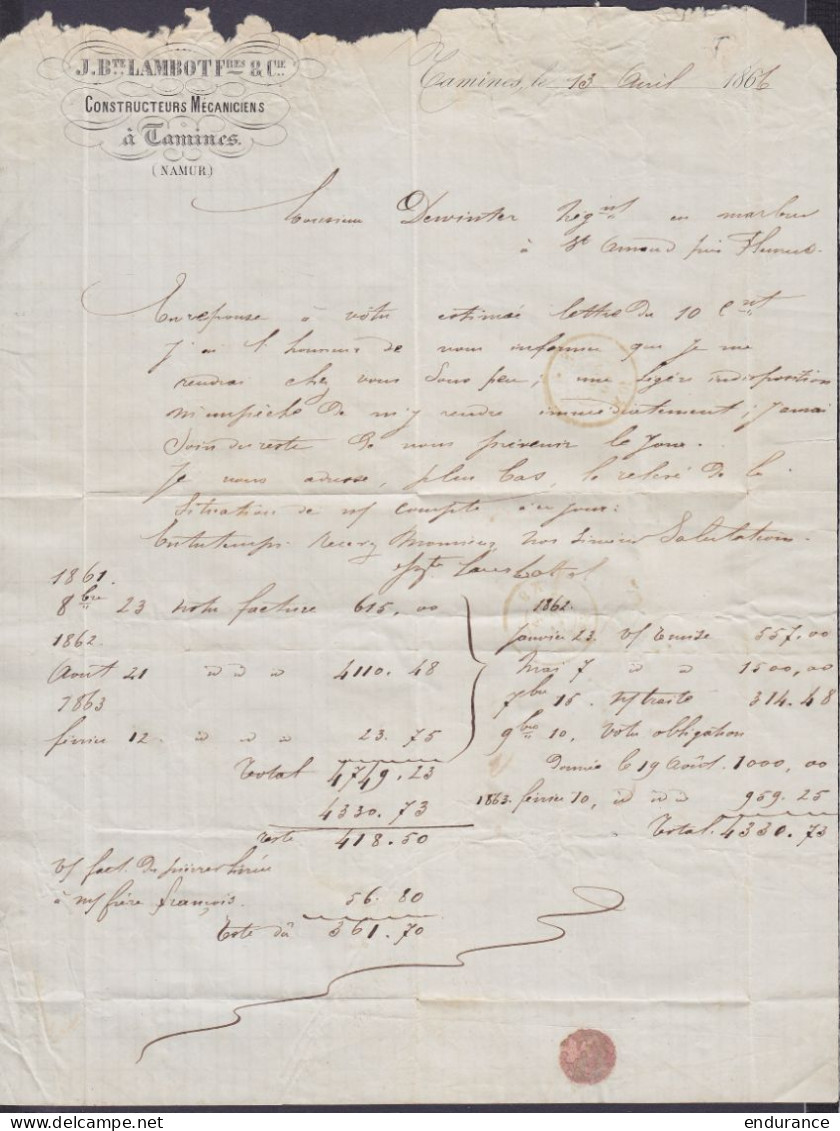 J. Bte LAMBOT Fres & Cie
CONSTRUCTEURS MÉCANICIENS
à Tamines.
(NAMUR)
Tamines, le 13 Avril 1866
Monsieur Dewinter Négnt en marbre
à St Amand près Fleurus.
En réponse à votre estimée lettre du 10 Crnt
J'ai l'honneur de vous informer que Je me
rendrai chez vous sous peu; une légère indisposition
m'empèche de m'y rendre immédiatement; J'aurai
Soin du reste de vous prévenir le Jour.
Je vous adresse, plus bas, le relevé de la
Situation de n/ compte à ce jour:
Entretemps Recevez Monsieur nos Sincères Salutations
1861.
8bre 23 notre facture 615,00
1862
Août 21 d d d 4110.48
1863
février 12. d d d 23.75
Total 4749.23
4330.73
reste 418.50
v/ fact. de pierre
à m/ frère françois. 56.80
Reste dû 361.70
1862.
Janvier 23. v/ remise 557.00
Mai 7 d d 1500,00
7bre 15. n/ traite 314.48
9bre 10, votre obligation
donnée le 19 Août. 1000,00
1863. février 10, d d d 959.25
Total. 4330.73
endurance